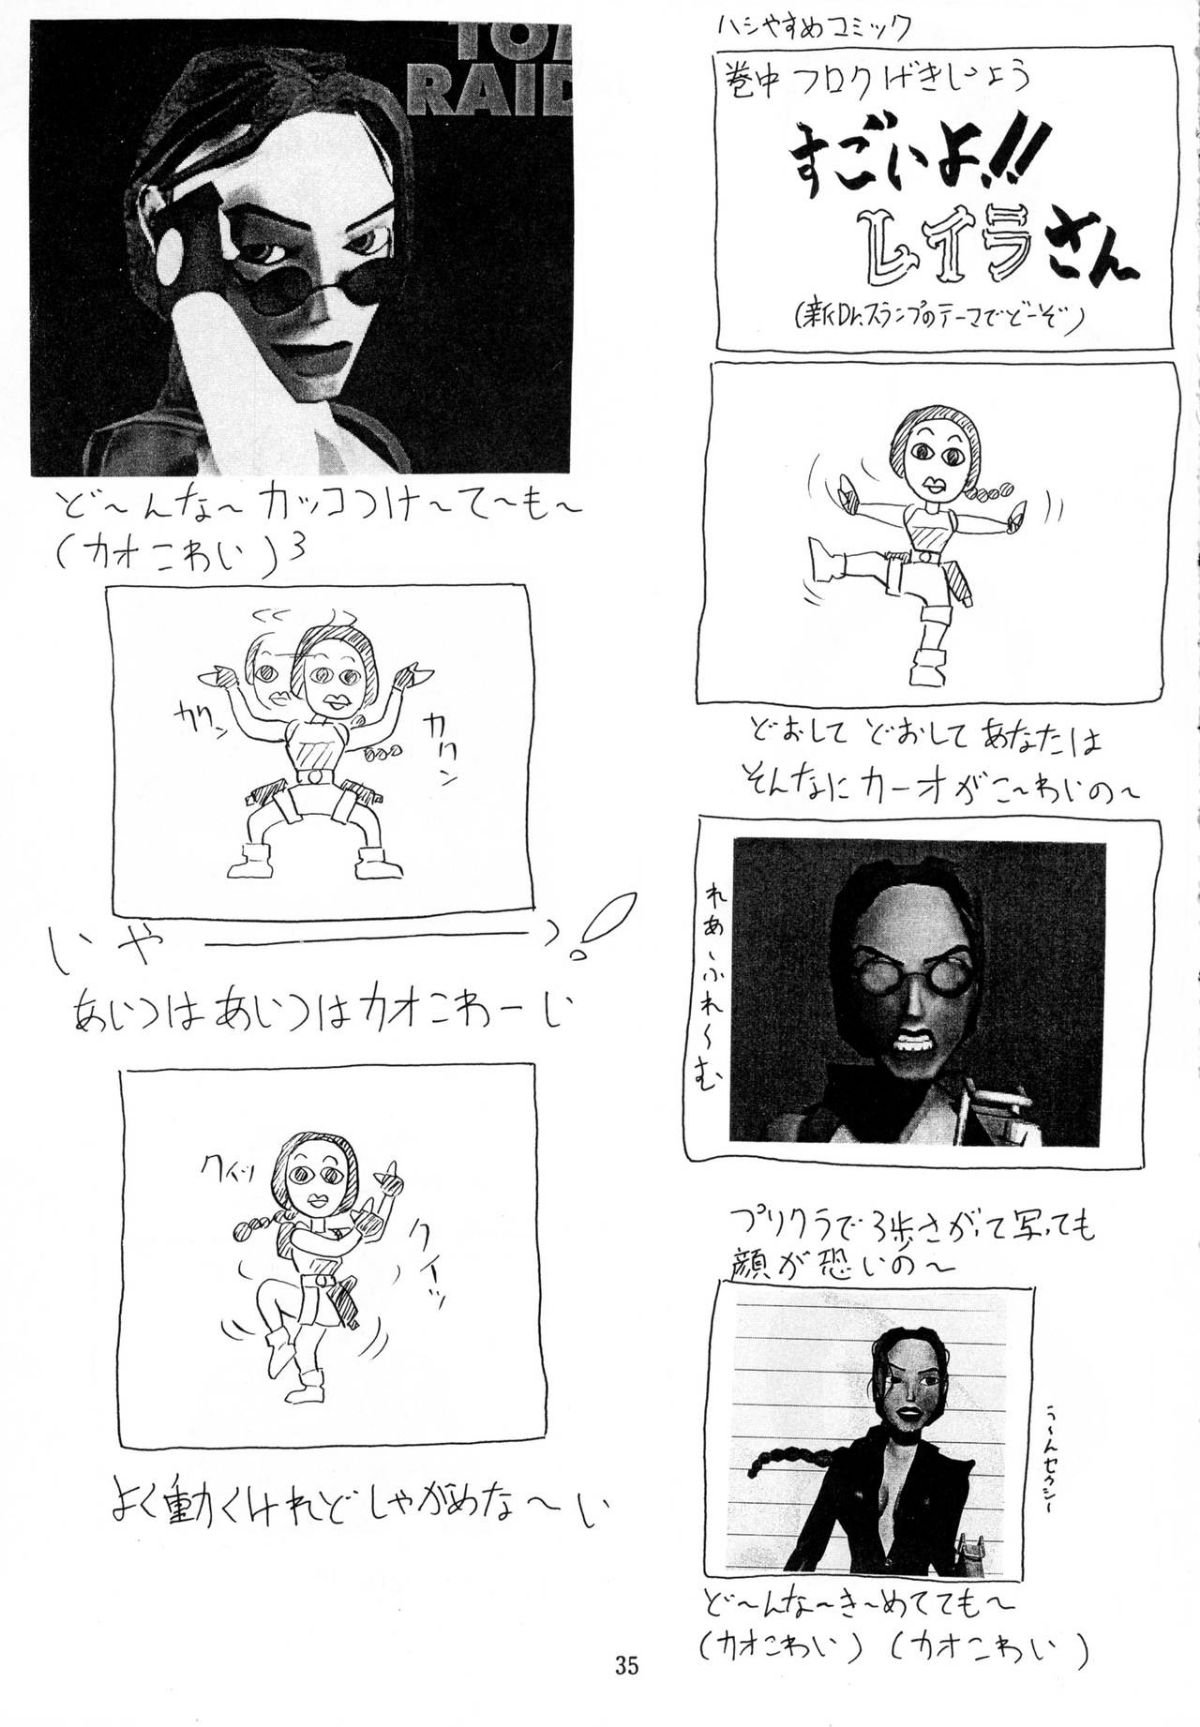 ハシやすめコミック
巻中フロクげきじょう
すごいよ!!
レイラさん
(新Dr.スランプのテーマでどーぞ)
どおしてどおしてあなたは
そんなにカーオがこ〜わいの〜
れあ〜ふれ〜む
プリクラで3歩さがって写っても
顔が恐いの〜
う〜んセクシー
ど〜んな〜き〜めてても〜
(カオこわい)(カオこわい)
TOM
RAID
ど〜んな〜カッコつけ〜て〜も〜
(カオこわい)3
カクン
カクン
いや――――っ!
あいつはあいつはカオこわーい
クイッ
クイーッ
よく動くけれどしゃがめな〜い
35